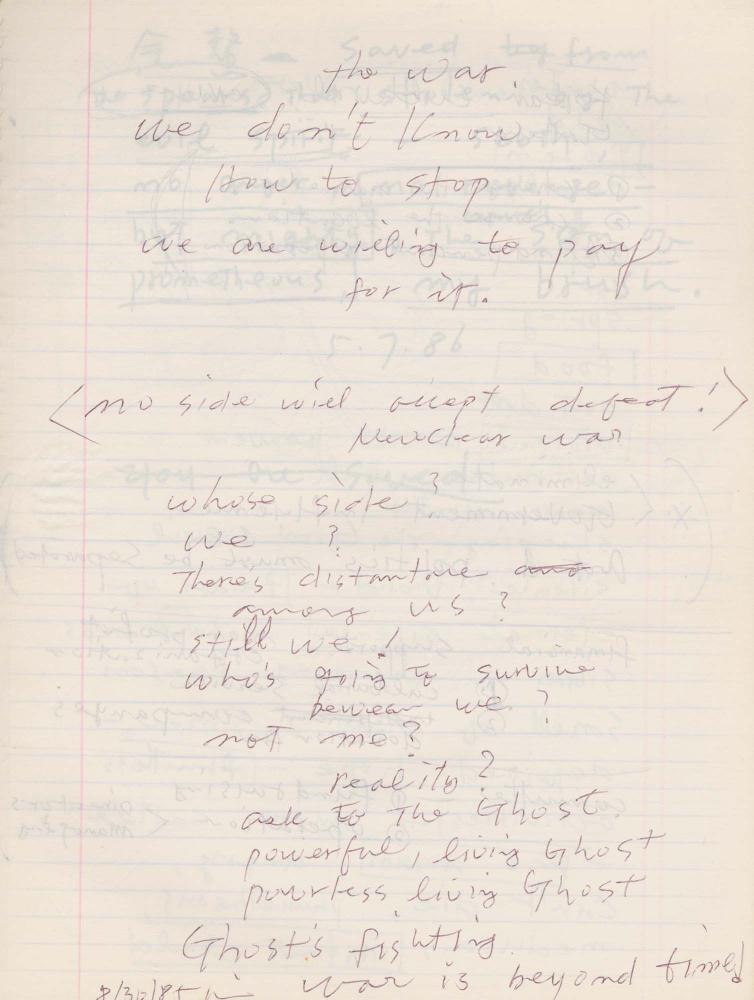 the war.
we don't Know
How to stop
we are willing to pay
for it.
<no side will accept defeat!>
Nuclear war
whose side?
we ?
There's distantance
among us ?
still we!
who's going to survive
between we ?
not me?
reality?
ask to The Ghost.
powerful, living Ghost
powrless living Ghost
Ghost's fishting
8/30/85 war is beyond time!